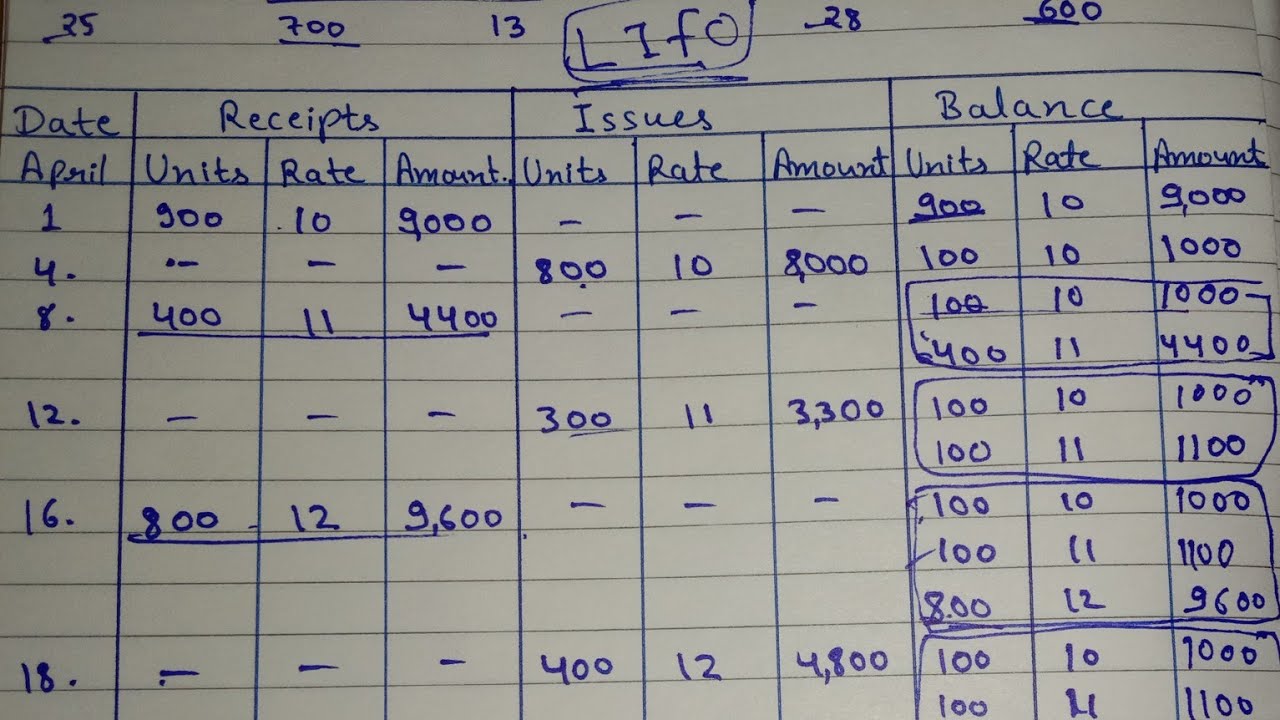 25 700 13 LIFO 28 600
Date Receipts Issues Balance
April Units Rate Amount. Units Rate Amount Units Rate Amount
1 900 10 9,000 — — — 900 10 9,000
4. — — — 800 10 8,000 100 10 1000
8. 400 11 4400 — — — 100 10 1000
400 11 4400
12. — — — 300 11 3,300 100 10 1000
100 11 1100
16. 800 12 9,600 — — — 100 10 1000
100 11 1100
800 12 9600
18. — — — 400 12 4,800 100 10 1000
100 11 1100